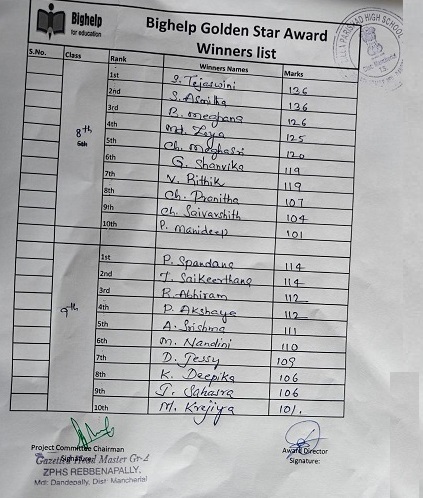 Bighelp
for education
Bighelp Golden Star Award
Winners list
S.No. Class Rank Winners Names Marks
8th
6th
1st S. Tejaswini 136
2nd S. Asmitha 136
3rd R. meghana 126
4th Md. Zoya 125
5th Ch. Meghasri 120
6th G. Shanvika 119
7th V. Rithik 119
8th Ch. Pranitha 107
9th Ch. Saivarshith 104
10th P. Manideep 101
9th
1st P. Spandana 114
2nd T. Saikeerthana 114
3rd R. Abhiram 112
4th P. Akshaya 112
5th A. Srishma 111
6th M. Nandini 110
7th D. Jessy 109
8th K. Deepika 106
9th T. Sahasra 106
10th M. Krejiya 101.
Project Committee Chairman
Signature:
Award Director
Signature:
Gazetted Head Master Gr-I
ZPHS REBBENAPALLY.
Mdl: Dandepally, Dist: Mancherial
PARISHAD HIGH SCHOOL